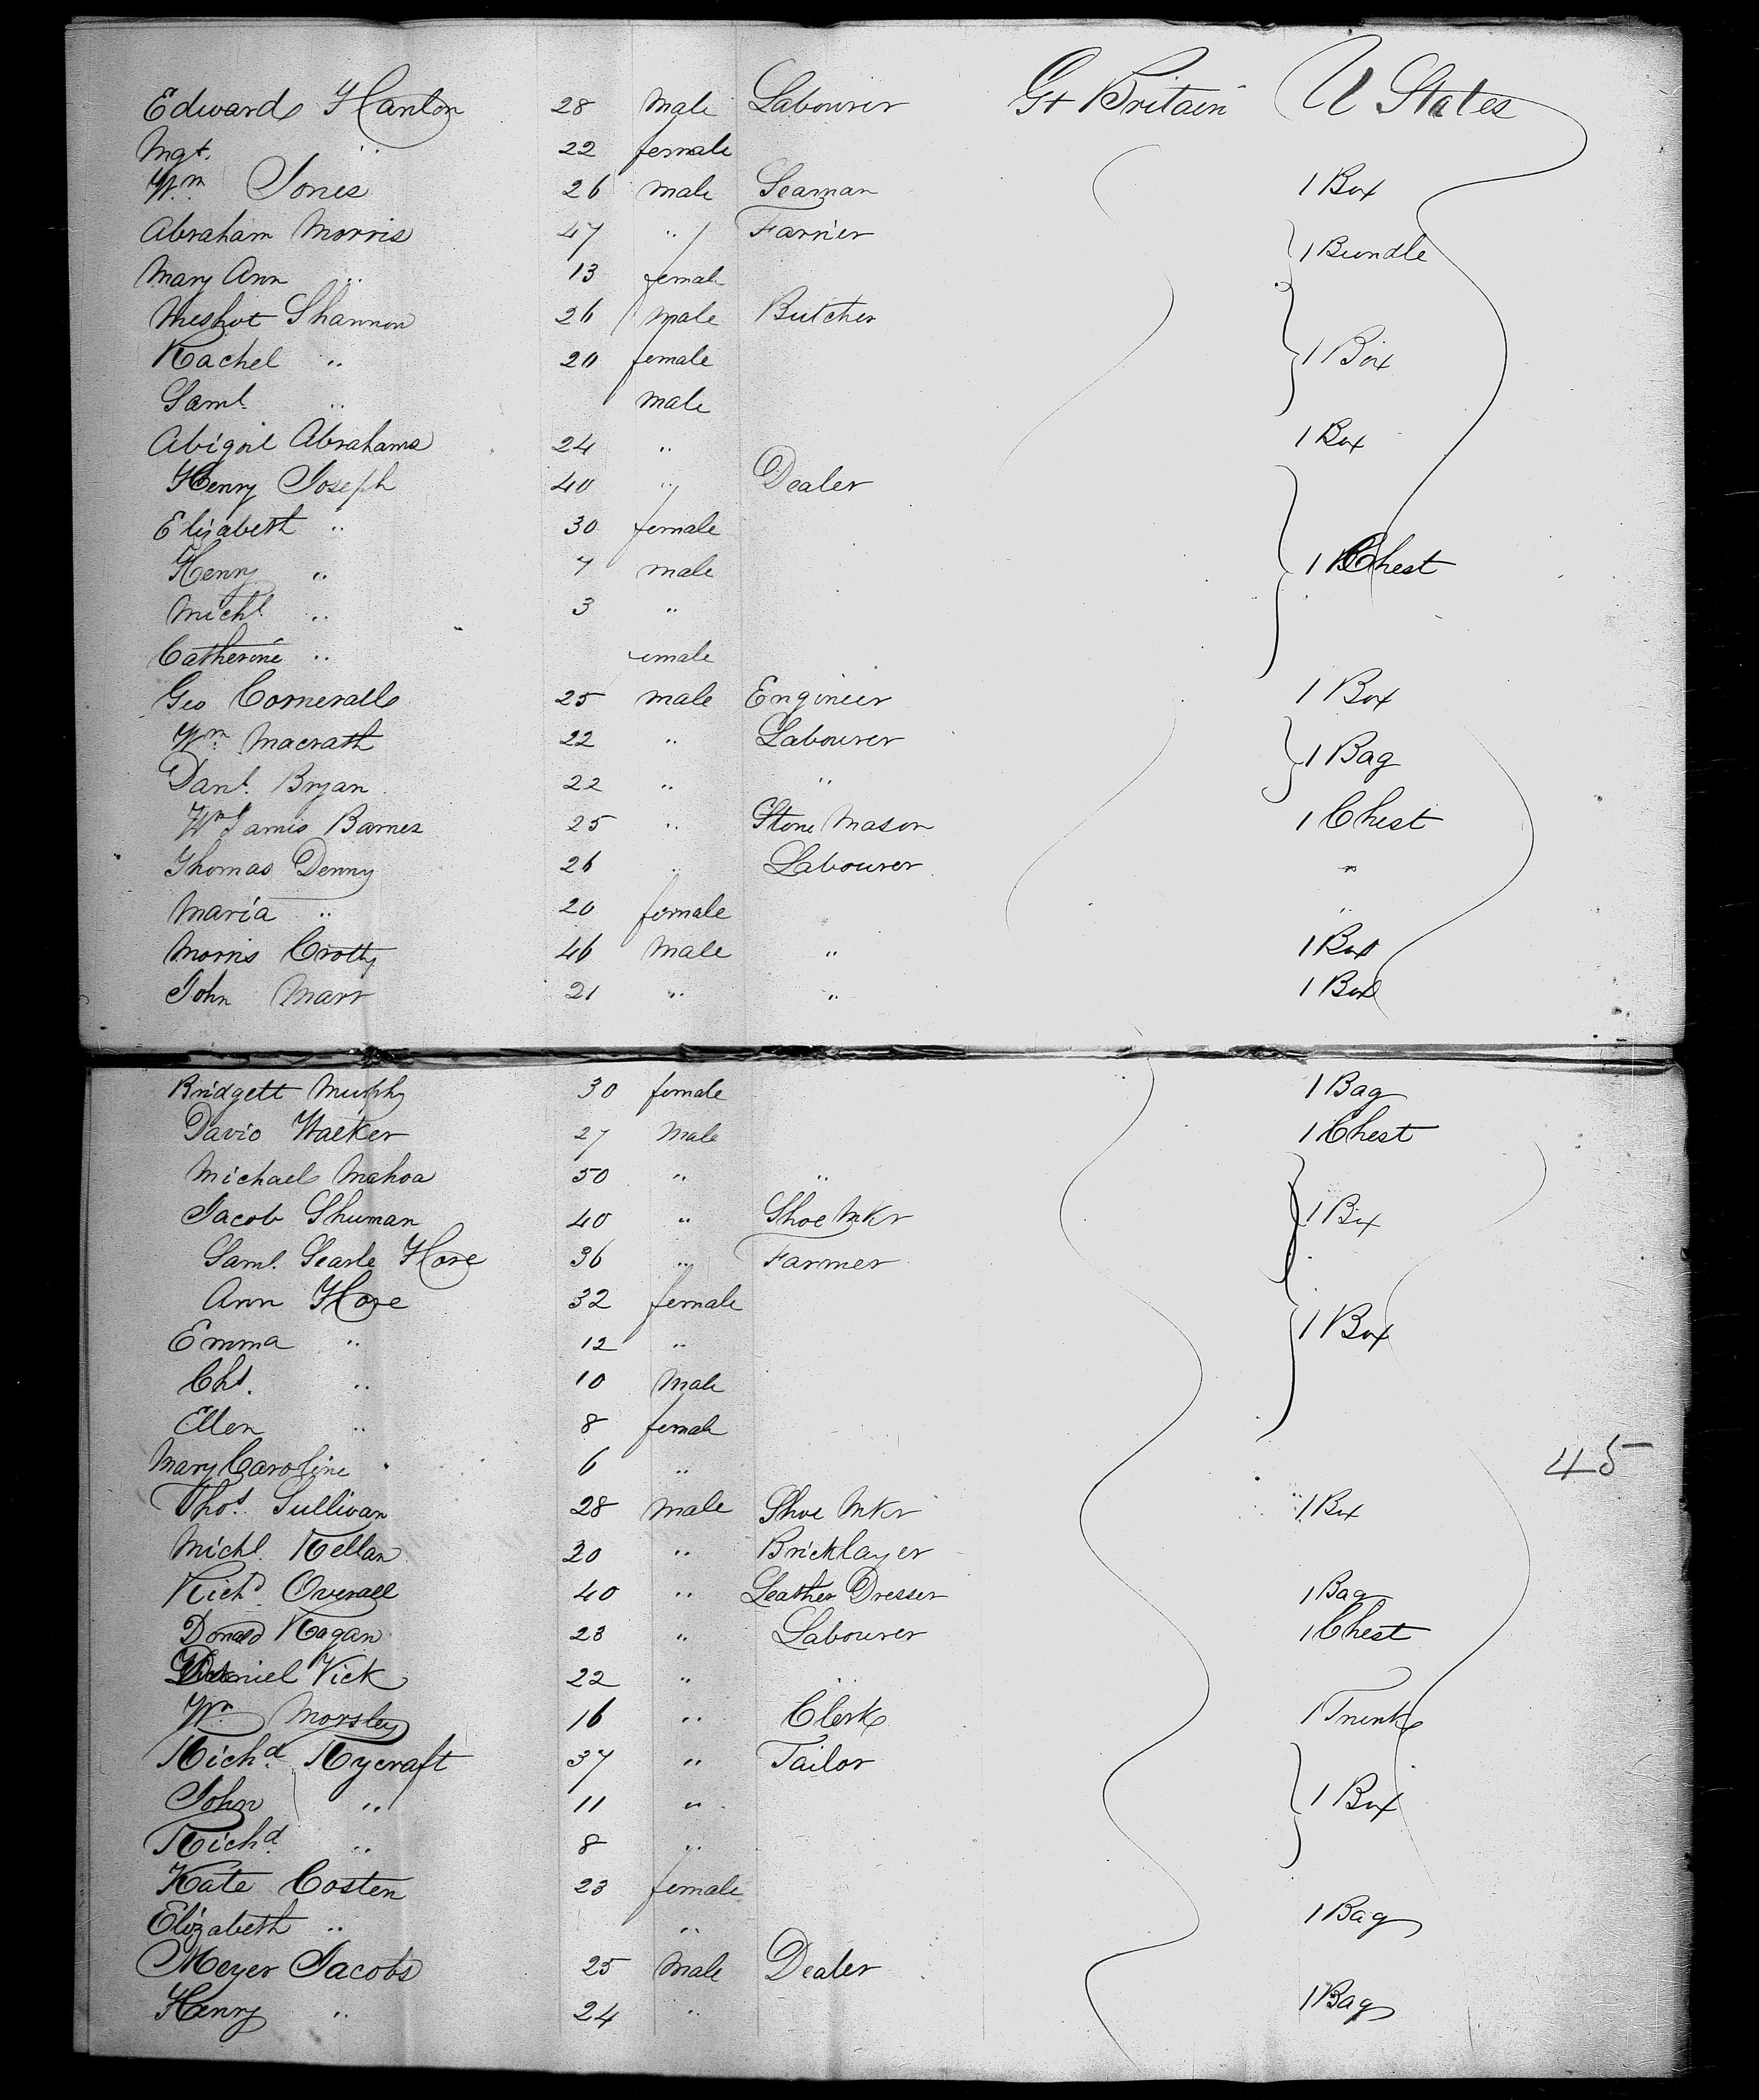 Edward Hanton 28 Male Labourer Gt Britain U States
Mgt. " 22 female
Wm Jones 26 male Seaman 1 Box
Abraham Morris 47 " Farrier 1 Bundle
Mary Ann " 13 female
Shannon 26 Male Butcher
Rachel " 20 female 1 Box
Saml. " male
Abigail Abrahams 24 " 1 Box
Henry Joseph 40 " Dealer
Elizabeth " 30 female
Henry " 7 male 1 Chest
Michl " 3 "
Catherine " emale
Geo 25 male Engineer 1 Box
Wm Macrath 22 " Labourer 1 Bag
Danl. Bryan 22 " "
Wm James Barnes 25 " Stone Mason 1 Chest
Thomas Denny 26 " Labourer "
Maria " 20 female "
Morris Crotty 46 Male " 1 Box
John Marr 21 " " 1 Box
Bridgett Murphy 30 female 1 Bag
David Walker 27 Male 1 Chest
Michael Mahoa 50 " "
Jacob Shuman 40 " Shoe Mkr 1 Box
Saml. Searle Hore 36 " Farmer
Ann Hore 32 female
Emma " 12 " 1 Box
Chs. " 10 Male
Ellen " 8 female
Mary Caroline " 6 " 45
Thos. Sullivan 28 male Shoe Mkr 1 Box
Michl. Kellan 20 " Bricklayer
Richd. Overall 40 " Leather Dresser 1 Bag
Donald Kagan 23 " Labourer 1 Chest
Daniel Vick 22 " "
Wm Morsley 16 " Clerk 1 Trunk
Richd. Rycraft 37 " Tailor
John " 11 " 1 Box
Richd. " 8 "
Kate Costen 23 female
Elizabeth " " 1 Bag
Meyer Jacobs 25 Male Dealer
Henry " 24 " 1 Bag